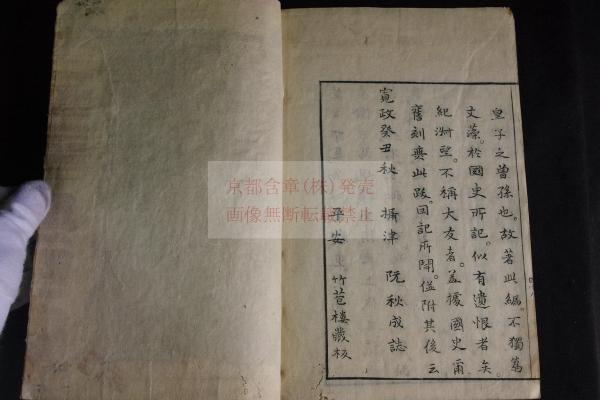 皇子之曾孫也。故著此編。不獨為
文藻。於國史所記。似有遺恨者矣。
紀淑望。不稱大友者。蓋據國史爾
舊刻無此跋。因記所聞。併附其後云
寛政癸丑秋 攝津 阮秋成誌
平安 竹苞樓藏板
京都含章(株)発売
画像無断転載禁止